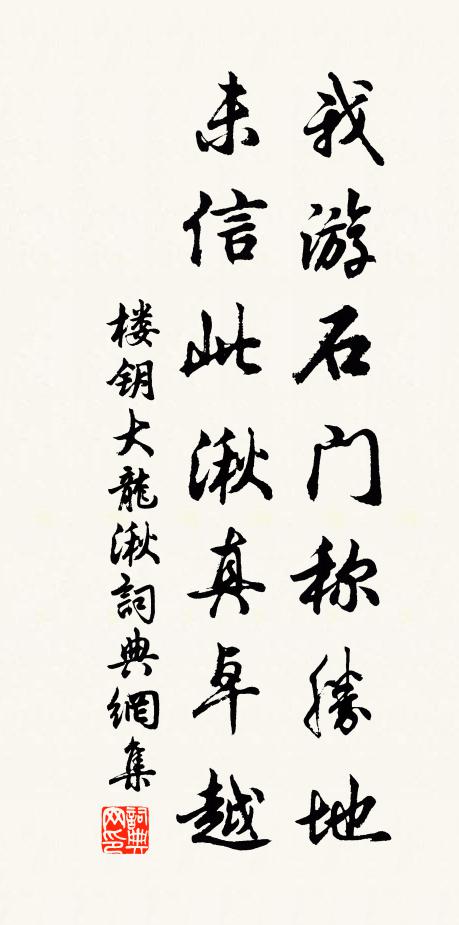 我游石门称勝地
未信此湫真卓越
楼钥大龍湫詞典網集
詞典网印